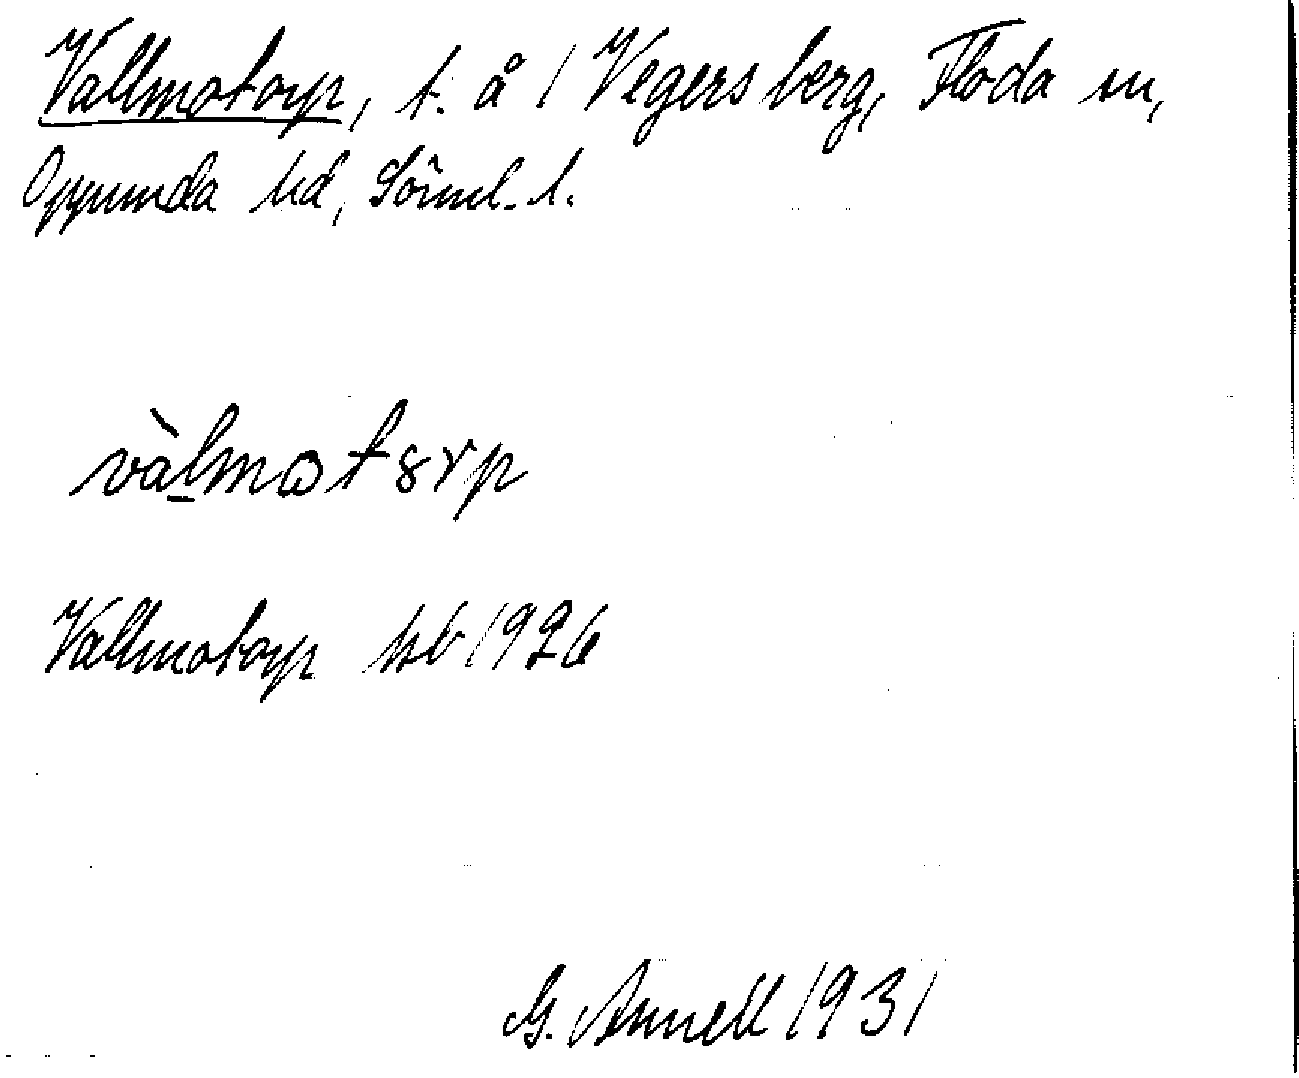 Vallmotorp, t. å 1 Vegersberg, Floda sn,
Oppunda hd, Söml. l.
vàlmωtȣrp
Vallmotorp kb 1926
G. Annell 1931